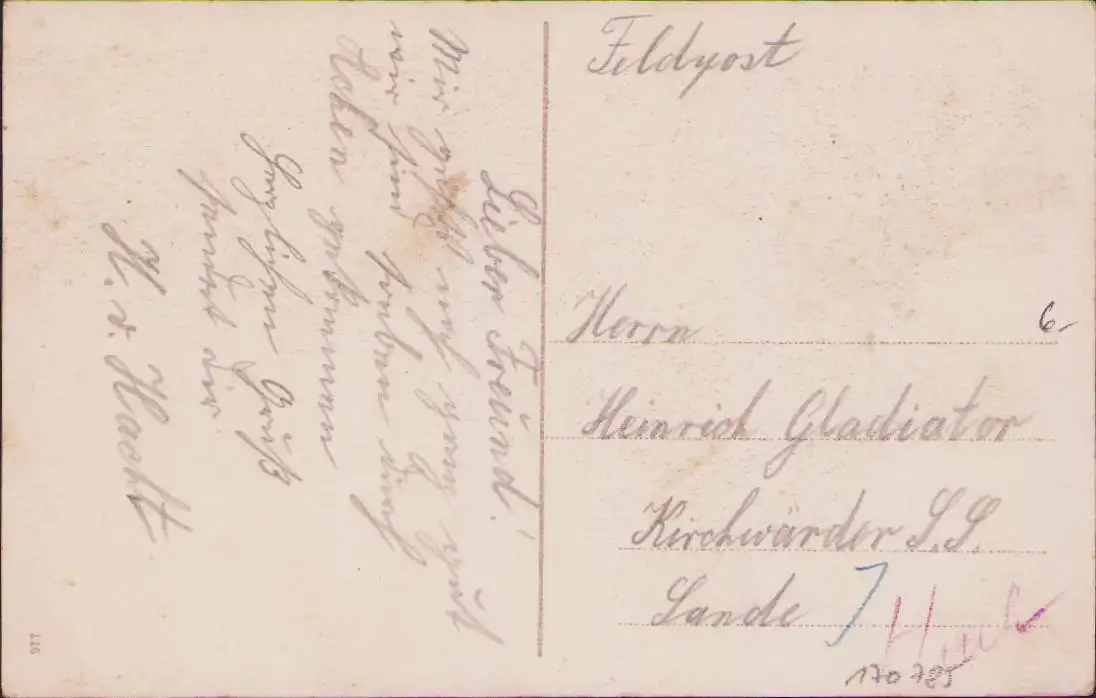 Lieber Freund!
Mir geht noch ganz gut
wir sind soeben durch
gekommen
Herzlichen Gruß
sendet dir
H. v. Hacht
Feldpost
Herrn
6-
Heinrich Gladiator
Kirchwärder S.S.
Sande
170785
977